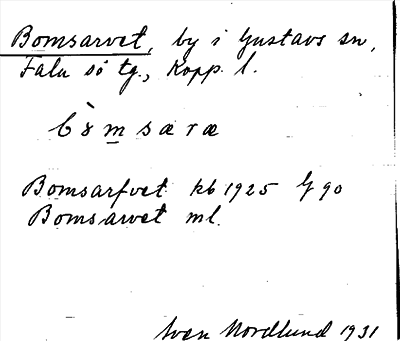 Bomsarvet, by i Gustavs sn,
Falu sö tg., Kopp. l.
Bomsarfvet kb 1925 G 90
Bomsarvet ml.
Sven Nordlund 1931